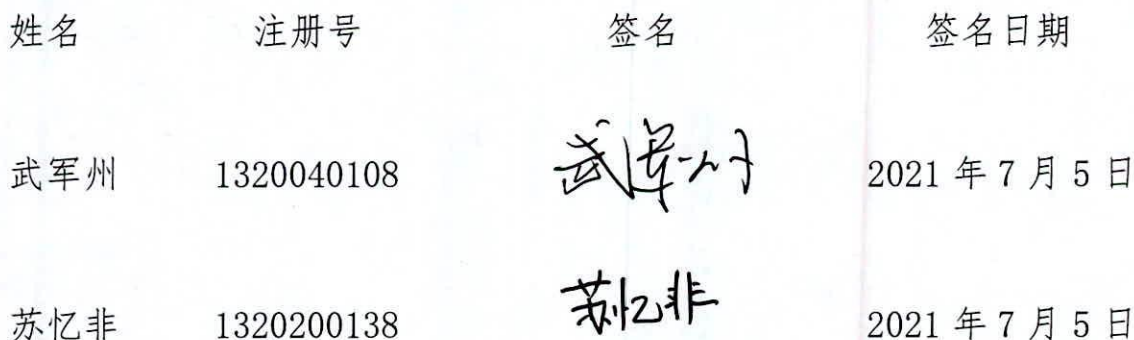 姓名 注册号 签名 签名日期
武军州 1320040108 武军州 2021 年 7 月 5 日
苏忆非 1320200138 苏忆非 2021 年 7 月 5 日